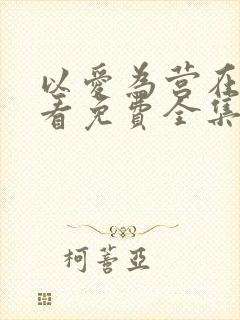 以愛為营在
看免費全集
柯蓍亞